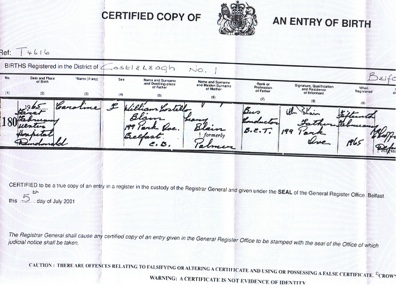 CERTIFIED COPY OF AN ENTRY OF BIRTH
Ref: T4616
BIRTHS Registered in the District of Castlereagh No. 1
No. Date and Place of Birth Name (if any) Sex Name and Surname and Dwelling-place of Father Name and Surname and Maiden Surname of Mother Rank or Profession of Father Signature, Qualification and Residence of Informant When Registered
(1) (2) (3) (4) (5) (6) (7) (8) (9)
180
1965
February
Ulster
Hospital
Dundonald
Caroline
F
William Costello
Blain
199 Park Ave.
Belfast
C.D.
Blain
formerly
Palmer
Bus
Conductor
B.C.T.
Blain
Father
199 Park
Ave
Fifteenth
February
1965
CERTIFIED to be a true copy of an entry in a register in the custody of the Registrar General and given under the SEAL of the General Register Office, Belfast
this 5th day of July 2001
The Registrar General shall cause any certified copy of an entry given in the General Register Office to be stamped with the seal of the Office of which
judicial notice shall be taken.
CAUTION: THERE ARE OFFENCES RELATING TO FALSIFYING OR ALTERING A CERTIFICATE AND USING OR POSSESSING A FALSE CERTIFICATE. ©CROW
WARNING: A CERTIFICATE IS NOT EVIDENCE OF IDENTITY